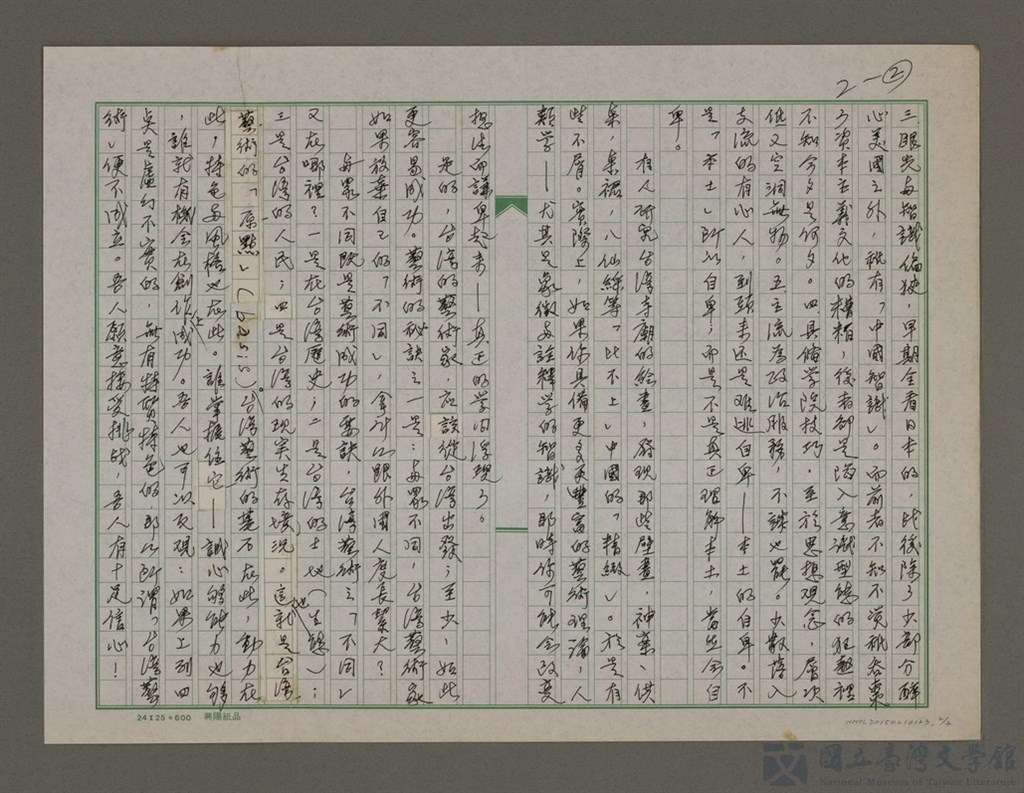 2－②
三眼光與智識偏狹，早期全看日本的，此後除了少部分醉
心美國之外，就有「中國智識」。而前者不知不覺就吞棄
了資本主義文化的糟粕，後者卻是陷入意識型態的狂熱裡
不知今夕是何夕。四具備學院技巧，至於思想觀念，層次
低又空洞無物。五主流為政治服務，不談也罷。少數落入
支流的有心人，到頭來還是難逃自卑——本土的自卑。不
是「本土」所以自卑；而是不是真正理解本土，當然會自
卑。
有人研究台灣寺廟的繪畫，發現那些壁畫，神案、供
桌，桌裙，八仙綵等「比不上」中國的「精緻」。於是有
些不屑。實際上，如果你具備更多更豐富的藝術理論，人
類學——尤其是象徵與詮釋學的智識，那時你可能會改變
想法而謙卑起來——真正的學問浮現了。
是的，台灣的藝術家，應該從台灣出發；至少，如此
更容易成功。藝術的秘訣之一是：與眾不同，台灣藝術家
如果放棄自己的「不同」，拿什麼跟外國人度長絜大？
與眾不同既是藝術成功的要訣，台灣藝術之「不同」
又在哪裡？一是在台灣歷史；二是台灣的土地（生態）；
三是台灣的人民；四是台灣的現實生存境況。這就是台灣
藝術的「原點」（basis）。台灣藝術的基石在此，動力在
此，特色與風格也在此。誰掌握住它——誠心夠能力也夠
，誰就有機會在創作上成功。吾人也可以反觀：如果上列四
點是虛幻不實的，無有特質特色的，那麼所謂「台灣藝
術」便不成立。吾人願意接受挑戰，吾人有十足信心！
24×25＝600
興陽紙品
NMTL20150210123, 2/2
國立臺灣文學館
National Museum of Taiwan Literature